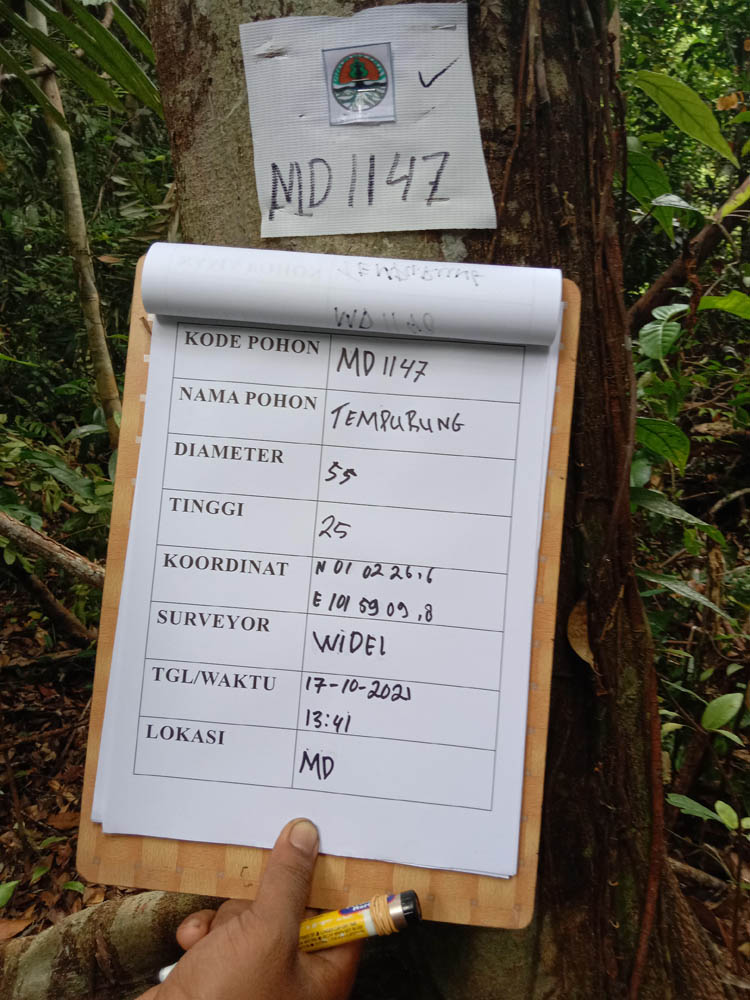 MD 1147
KODE POHON MD 1147
NAMA POHON TEMPURUNG
DIAMETER 55
TINGGI 25
KOORDINAT N 01 02 26,6
E 101 59 09,8
SURVEYOR WIDEL
TGL/WAKTU 17-10-2021
13:41
LOKASI MD